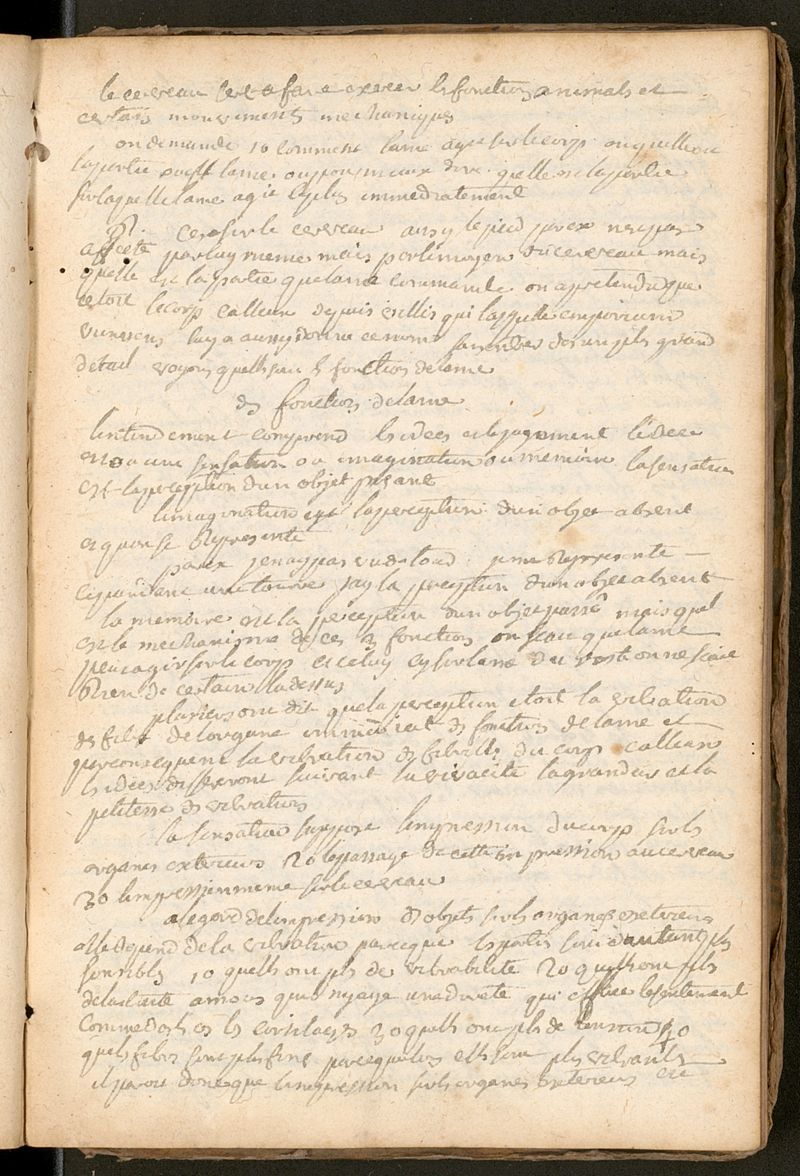 le cerveau sert a faire exercer les fonctions animals et
certains mouvements mechaniques
on demande 1o comment lame agit sur le corps ou quelle est
la partie ou est lame ou pour mieux dire quelle est la partie
sur laquelle lame agit le plus immediatement
R. cest sur le cerveau ainsy le pied par ex nest pas
affecté par luy meme mais par le moyen du cerveau mais
quelle est la partie que lame commande on a pretendu que
cetoit le corps calleux depuis willis qui lappelle
vieussens luy a aussy donné ce nom sans entrer dans un plus grand
detail voyons quelles sont les fonctions de lame
des fonctions de lame
lentendement comprend les idées et le jugement lidee
est ou une sensation ou imagination ou memoire la sensation
est la perception dun objet present
limagination est la perception dun objet absent
et quon se represente
par ex je nay pas vu de je me represente
cependant une tour jay la perception dun objet absent
la memoire est la perception dun objet passé mais quel
est le mechanisme de ces 3 fonctions on scait que lame
peut agir sur le corps et celuy cy sur lame du reste on ne scait
rien de certain la dessus
plusieurs ont dit que la perception etoit la vibration
des fibres de lorgane immediat des fonctions de lame et
par consequent la vibration des fibrilles du corps calleux
les idées differeront suivant la vivacité la grandeur et la
petitesse des vibrations
la sensation suppose limpression du corps sur les
organes exterieurs 2o le passage de cette impression au cerveau
3o limpression meme sur le cerveau
a legard de limpression des objets sur les organes exterieurs
elle depend de la vibration parceque les parties sont dautant plus
sensibles 1o quelles ont plus de vibrabilité 2o quelles ont plus
delasticité amoins quil ny aye une dureté qui
comme dans les os les cartilages 3o quelles ont plus de tension 4o
que les fibres sont plus fines parcequalors elles sont plus vibrantes
il paroit donc que limpression sur les organes exterieurs est